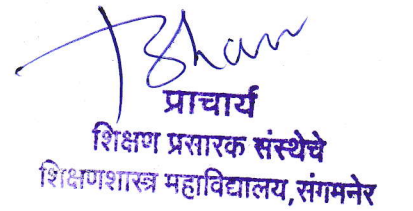 प्राचार्य
शिक्षण प्रसारक संस्थेचे
शिक्षणशास्त्र महाविद्यालय,संगमनेर